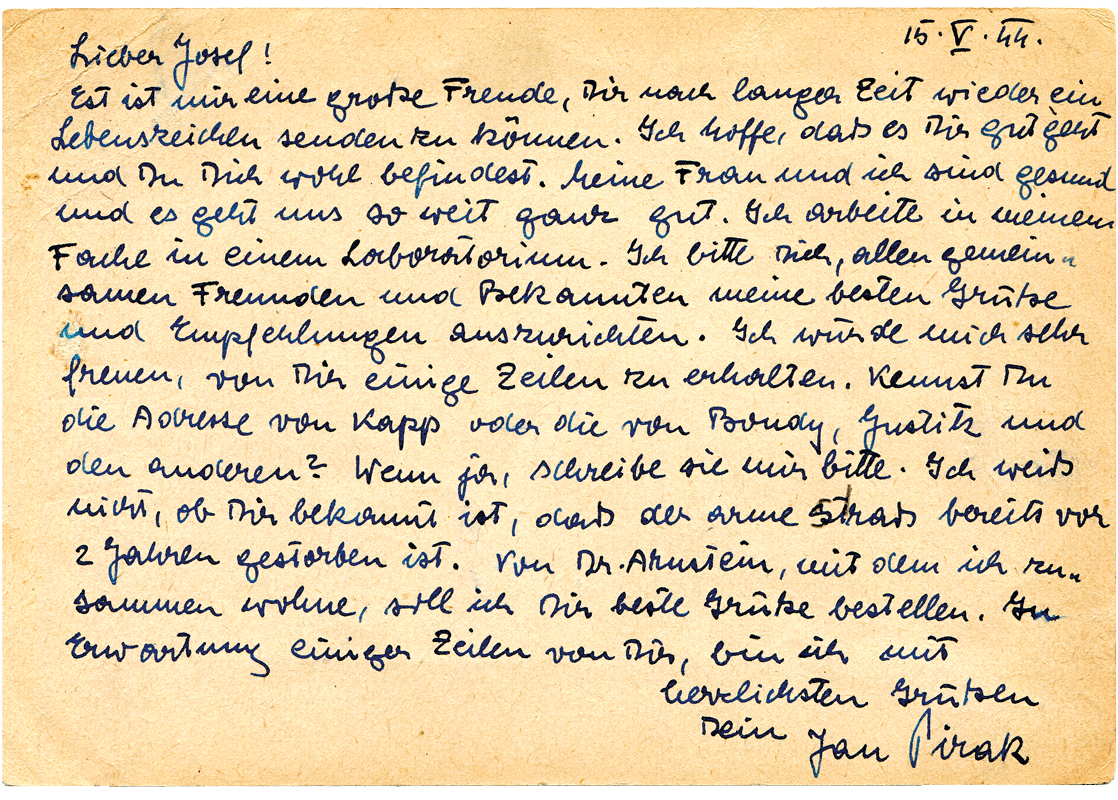 15. V. 44.
Lieber Josef!
Est ist mir eine große Freude, Dir nach langer Zeit wieder ein
Lebenszeichen senden zu können. Ich hoffe, daß es Dir gut geht
und Du Dich wohl befindest. Meine Frau und ich sind gesund
und es geht uns so weit ganz gut. Ich arbeite in meinem
Fache in einem Laboratorium. Ich bitte Dich, allen gemein-
samen Freunden und Bekannten meine besten Grüße
und Empfehlungen auszurichten. Ich würde mich sehr
freuen, von Dir einige Zeilen zu erhalten. Kennst Du
die Adresse von Kapp oder die von Bondy, Gustik und
den anderen? Wenn ja, schreibe sie mir bitte. Ich weiß
nicht, ob Dir bekannt ist, daß der arme Straß bereits vor
2 Jahren gestorben ist. Von Dr. Arnstein, mit dem ich zu-
sammen wohne, soll ich Dir beste Grüße bestellen. In
Erwartung einiger Zeilen von Dir, bin ich mit
herzlichsten Grüßen
Dein Jan Pirak